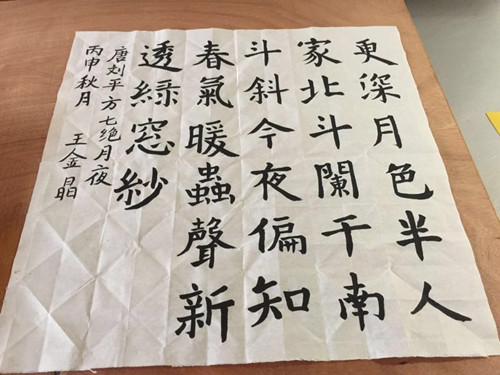 更深月色半人
家北斗闌干南
斗斜今夜偏知
春氣暖蟲聲新
透綠窓紗
唐刘平方七绝月夜
丙申秋月 王金晶